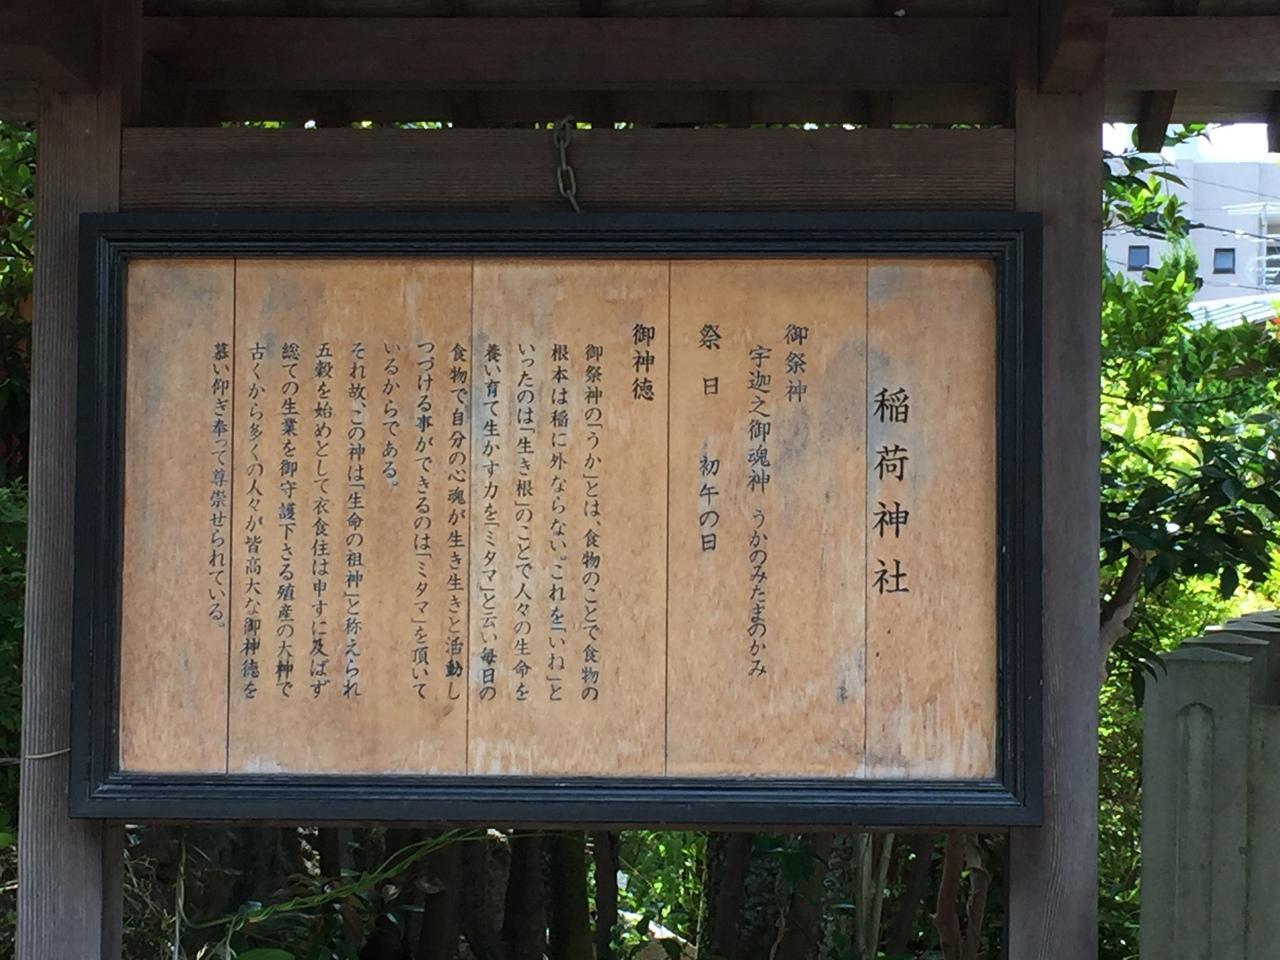 稲荷神社
御祭神
宇迦之御魂神 うかのみたまのかみ
祭 日 初午の日
御神徳
御祭神の「うか」とは、食物のことで食物の
根本は稲に外ならない。これを「いね」と
いったのは「生き根」のことで人々の生命を
養い育て生かす力を「ミタマ」と云い毎日の
食物で自分の心魂が生き生きと活動し
つづける事ができるのは「ミタマ」を頂いて
いるからである。
それ故、この神は「生命の祖神」と称えられ
五穀を始めとして衣食住は申すに及ばず
総ての生業を御守護下さる殖産の大神で
古くから多くの人々が皆高大な御神徳を
慕い仰ぎ奉って尊崇せられている。